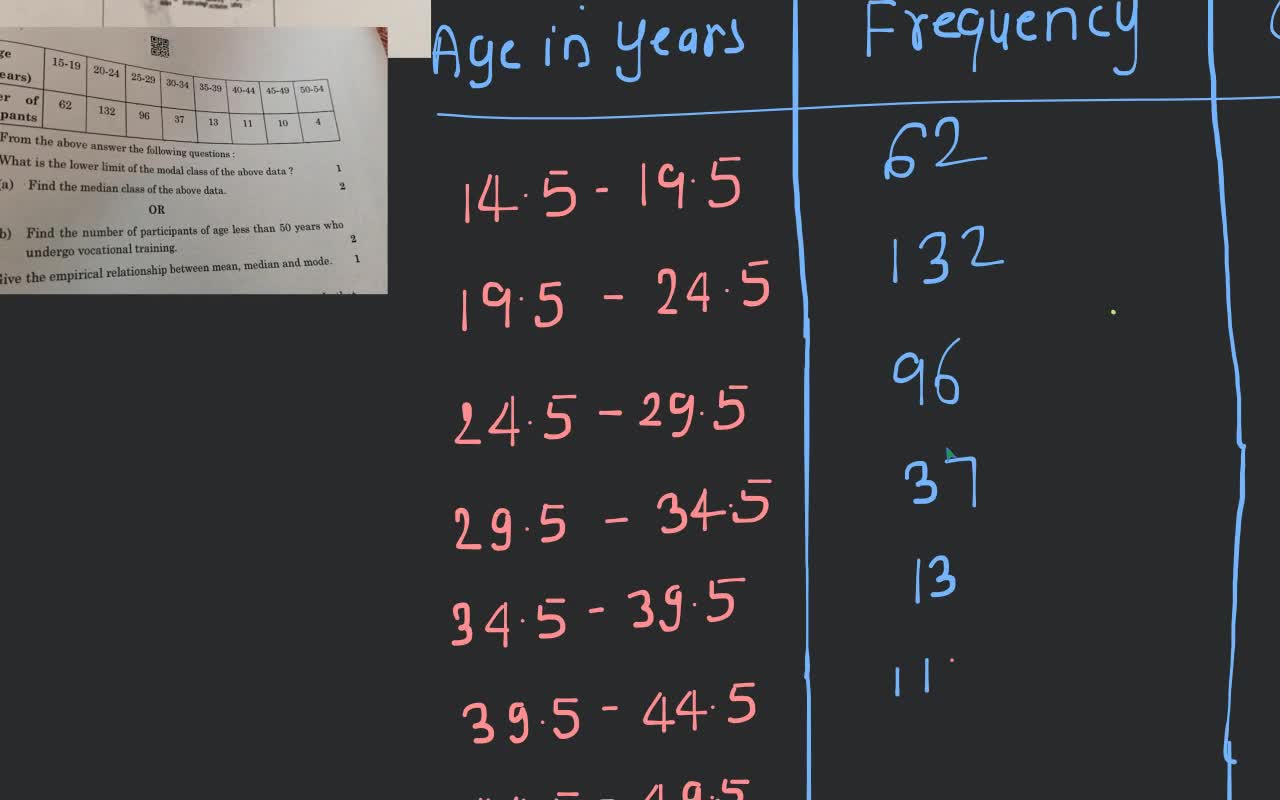 15-19 20-24 25-29 30-34 35-39 40-44 45-49 50-54
ears)
er of 62 132 96 37 13 11 10 4
pants
From the above answer the following questions :
What is the lower limit of the modal class of the above data ? 1
(a) Find the median class of the above data. 2
OR
b) Find the number of participants of age less than 50 years who
undergo vocational training. 2
Give the empirical relationship between mean, median and mode. 1
Age in years Frequency
14.5 - 19.5 62
19.5 - 24.5 132
24.5 - 29.5 96
29.5 - 34.5 37
34.5 - 39.5 13
39.5 - 44.5 11